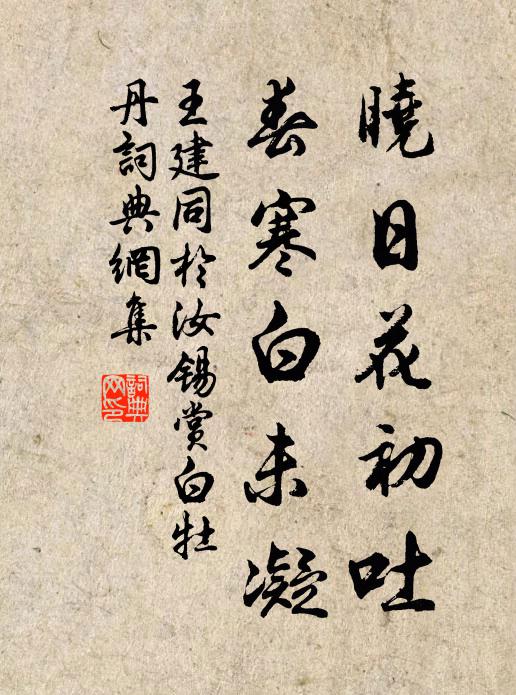 曉日花初吐
春寒白未凝
王建同於汝錫賞白牡
丹詞典網集
詞典
网印